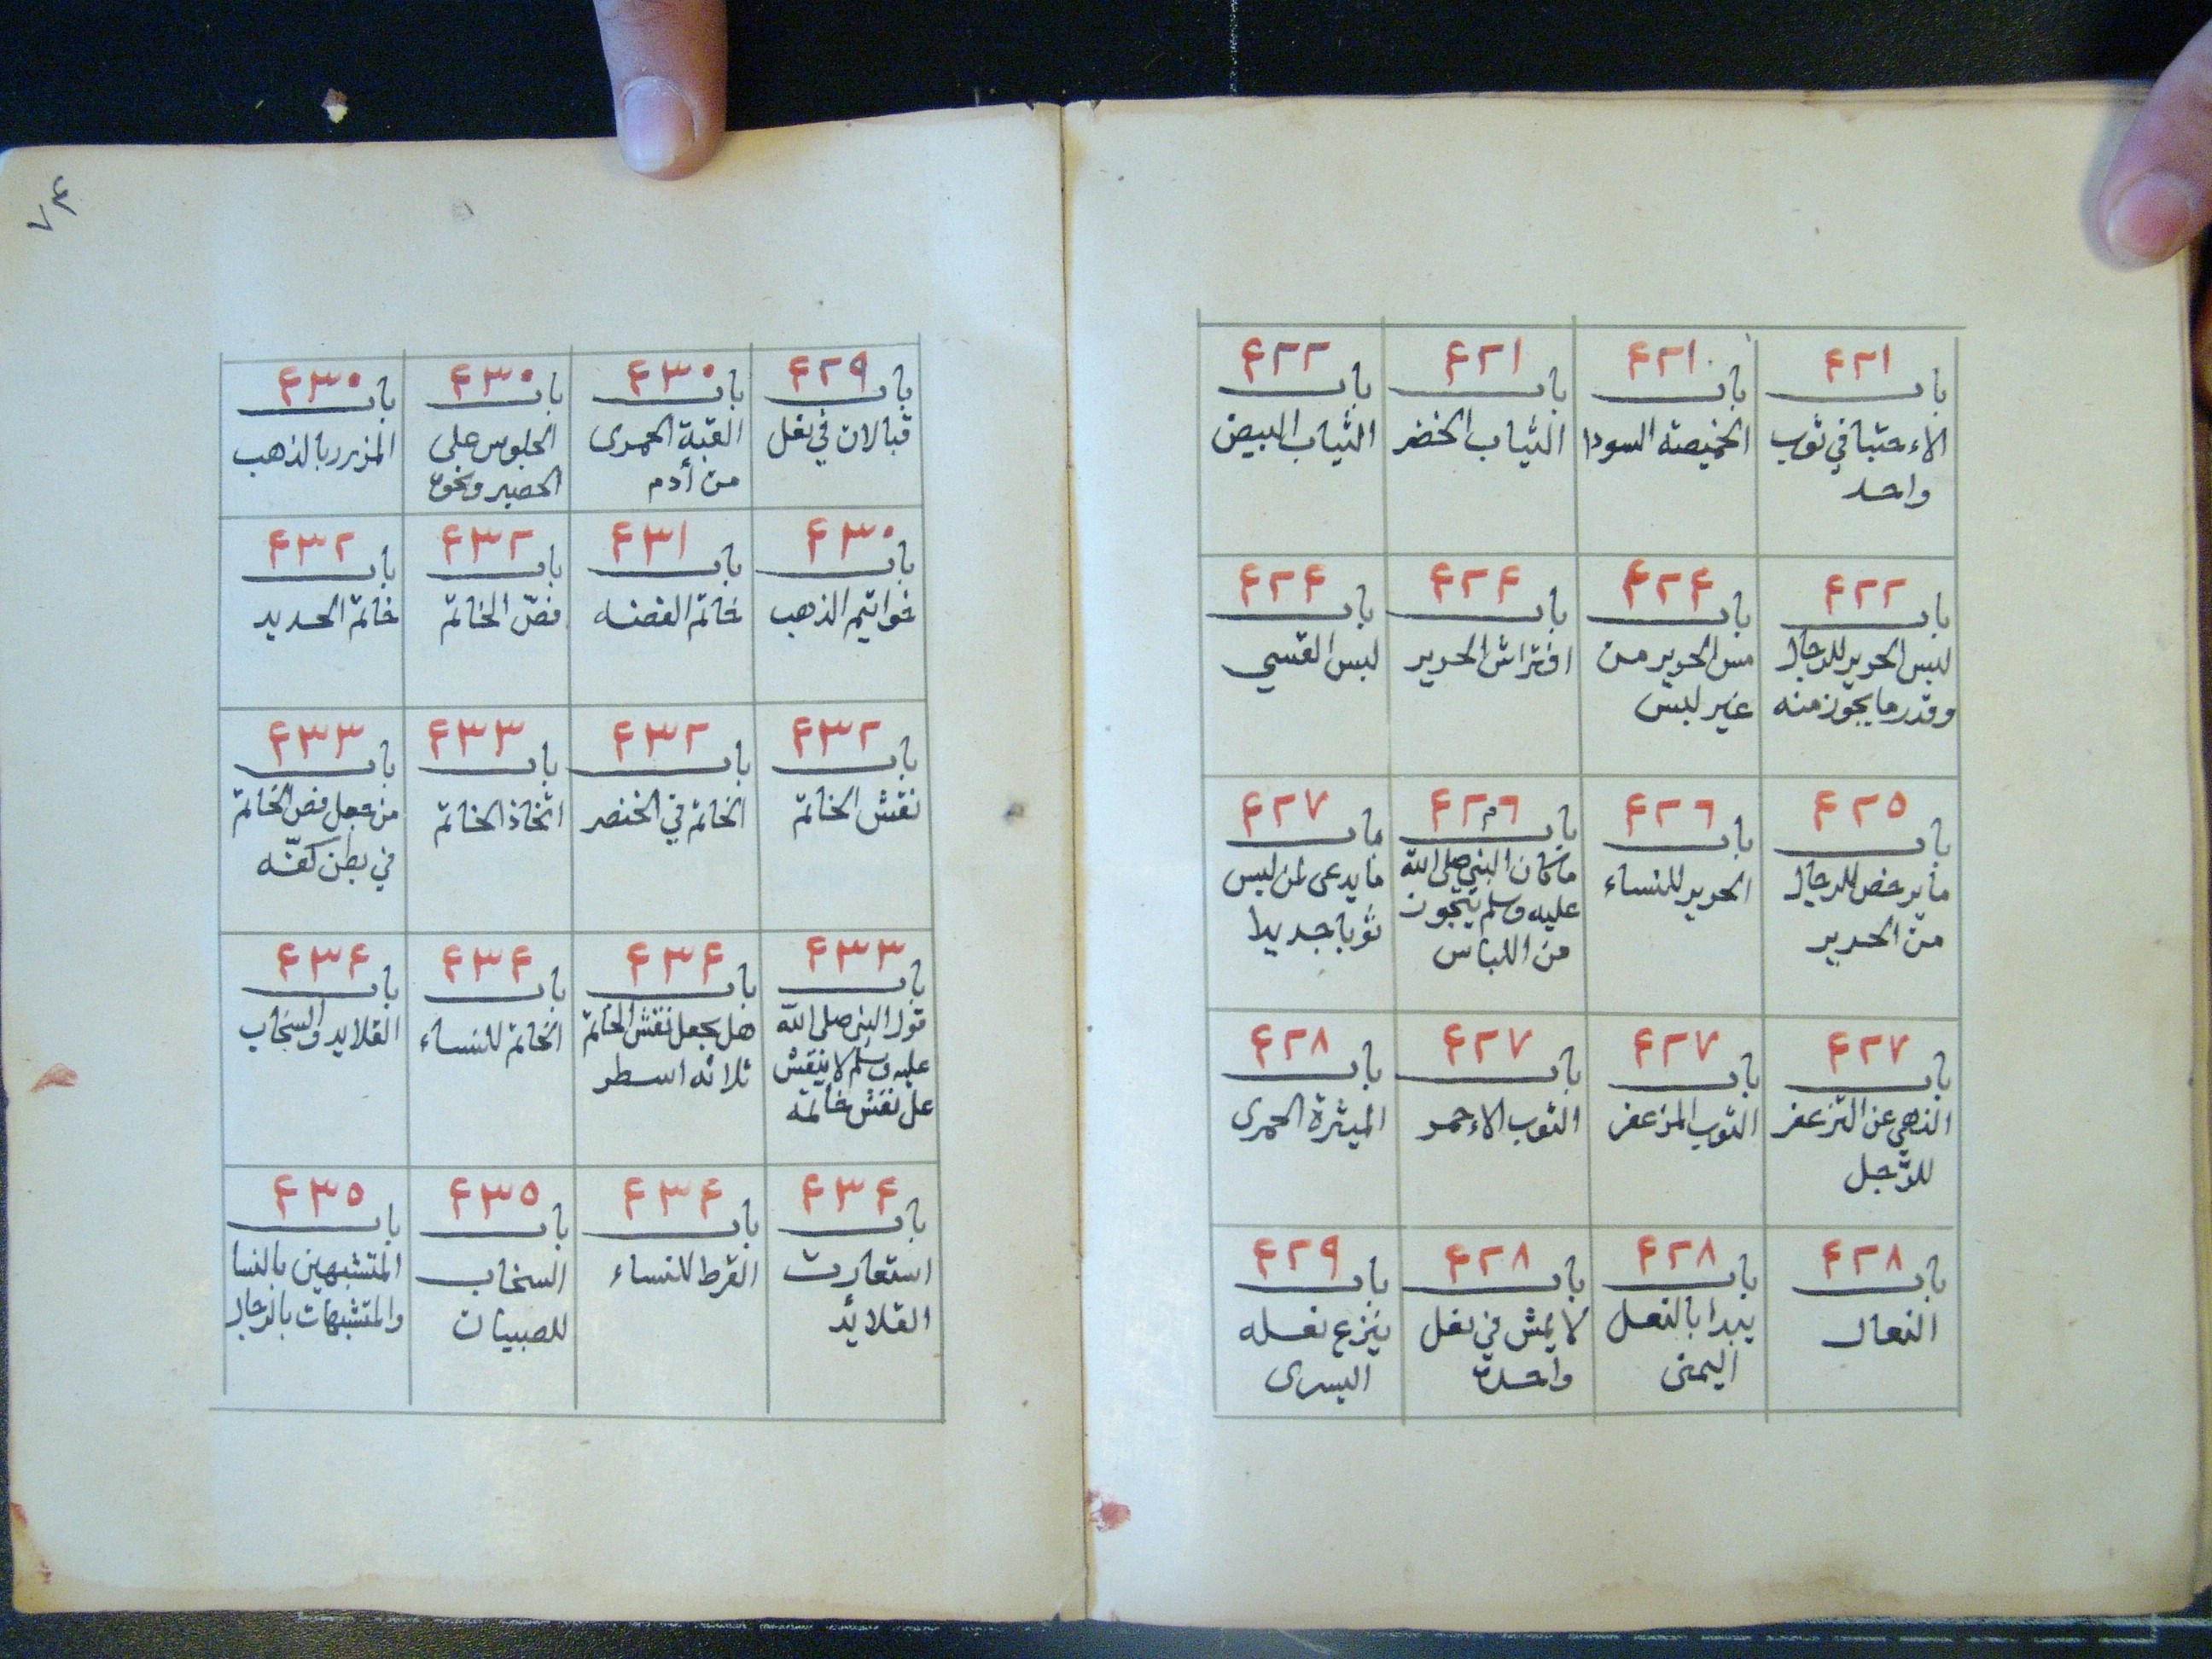 ٤٢١
باب
الاءحتبا في ثوب
واحد
٤٢١
باب
الخميصة السودا
٤٢١
باب
الثياب الخضر
٤٢٢
باب
الثياب البيض
٤٢٢
باب
لبس الحرير للرجال
وقدر ما يجوز منه
٤٢٤
باب
مس الحرير من
غير لبس
٤٢٤
باب
افتراش الحرير
٤٢٤
باب
لبس القسي
٤٢٥
باب
ما يرخص للرجال
من الحرير
٤٢٦
باب
الحرير للنساء
٤٢٦
باب
ما كان النبي صلى الله
عليه وسلم يتجوز
من اللباس
٤٢٧
باب
ما يدعى لمن لبس
ثوبا جديدا
٤٢٧
باب
النهي عن التزعفر
للرّجل
٤٢٧
باب
الثوب المزعفر
٤٢٧
باب
الثوب الاءحمر
٤٢٨
باب
الميثرة الحمرى
٤٢٨
باب
النعال
٤٢٨
باب
يبدا بالنعل
اليمنى
٤٢٨
باب
لا يمش في نعل
واحدة
٤٢٩
باب
ينزع نعله
اليسرى
٤٢٩
باب
قبالان في نعل
٤٣٠
باب
القبة الحمرى
من أدم
٤٣٠
باب
الجلوس على
الحصير ونحوه
٤٣٠
باب
المزرر بالذهب
٤٣٠
باب
خواتيم الذهب
٤٣١
باب
خاتم الفضه
٤٣٢
باب
فصّ الخاتم
٤٣٢
باب
خاتم الحديد
٤٣٢
باب
نقش الخاتم
٤٣٢
باب
الخاتم في الخنصر
٤٣٣
باب
اتخاذ الخاتم
٤٣٣
باب
من جعل فص الخاتم
في بطن كفّه
٤٣٣
باب
قول النبي صلى الله
عليه وسلم لا ينقش
على نقش خاتمه
٤٣٤
باب
هل يجعل نقش الخاتم
ثلاثه اسطر
٤٣٤
باب
الخاتم للنساء
٤٣٤
باب
القلايد والسخاب
٤٣٤
باب
استعارت
القلائد
٤٣٤
باب
القرط للنساء
٤٣٥
باب
السخاب
للصبيان
٤٣٥
باب
المتشبهين بالنسا
والمتشبهات بالرجال